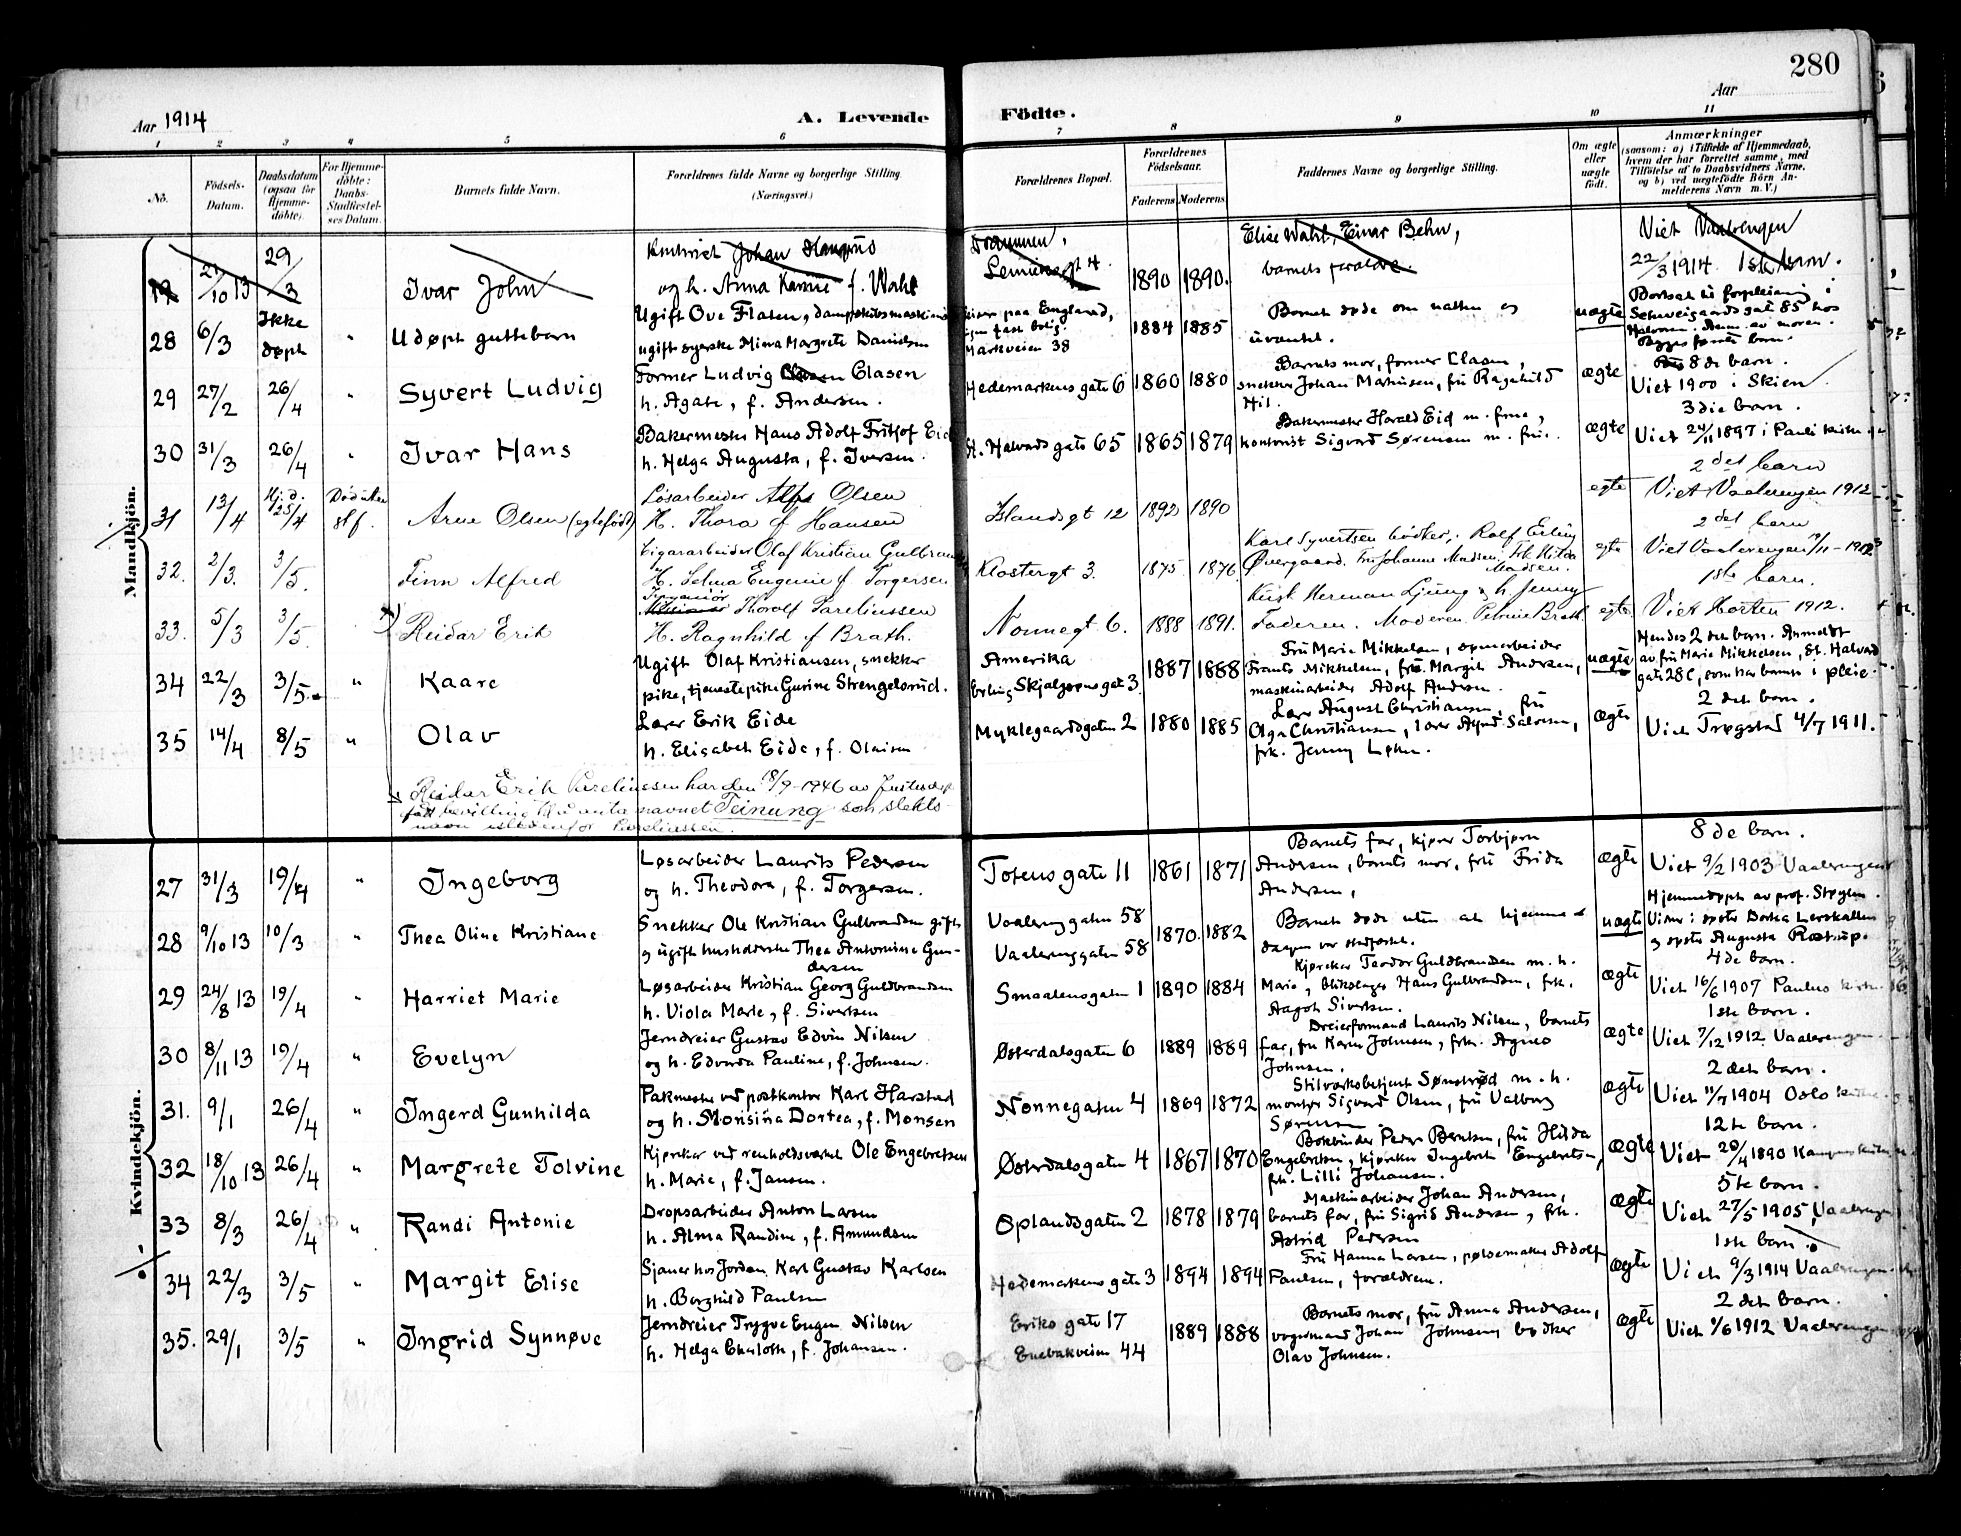 280
Aar 1914
A. Levende Födte.
Aar
1 2 3 4 5 6 7 8 9 10 11
No.
Födsels-Datum.
Daabsdatum (ogsaa for Hjemme-döbte).
For Hjemme-döbte: Daabs-Stadfæstel-ses Datum.
Barnets fulde Navn.
Forældrenes fulde Navne og borgerlige Stilling. (Næringsvei.)
Forældrenes Bopæl.
Forældrenes Födselsaar.
Faderens Moderens
Faddernes Navne og borgerlige Stilling.
Om ægte eller uægte födt.
Anmærkninger
(saasom: a) i Tilfælde af Hjemmedaab, hvem der har forrettet samme, med Tilföielse af to Daabsvidners Navne, og b) ved uægtefödte Börn An-melderens Navn m. V.)
Mandkjön.
21/10 13 29/3 Ivar John
Kontorist Johan
og h. Anna f. Wahl
1890 1890.
Elise Wahl, Einar Behn,
barnets forældre.
Viet Vaalerengen
22/3 1914 1ste barn.
28 6/3 Ikke døpt " Udøpt guttebarn
Ugift Ove Flasen,
ugift syerske Mina Margrete Danielsen
reiser paa England,
Markveien 38
1884 1885
Barnet døde om natten og
uventet.
uægte
Schweigaards gat 85 hos
29 27/2 26/4 " Syvert Ludvig
Former Ludvig Clasen
h. Agate, f. Andersen.
Hedemarkens gate 6 1860 1880
Barnets mor, former Clasen,
snekker Johan Martinsen, fru Ragnhild
ægte
8de barn.
Viet 1900 i Skien
30 31/3 26/4 " Ivar Hans
Bakermester Hans Adolf Fritjof Eid
h. Helga Augusta, f. Iversen.
St. Halvards gate 65 1865 1879
Bakermester Harald Eid m. frue,
kontorist Sigvard Sørensen m. frue.
ægte
3die barn.
Viet 24/11 1897 i Pauli kirke
31 13/4 Hj. d. 25/4 Arne Olsen (egtefødt)
Løsarbeider Olsen
H. Thora f Hansen
Islandsgt 12 1892 1890
egte
2det barn
Viet Vaalerengen 1912
32. 2/3. 3/5. Finn Alfred
Cigararbeider Olaf Kristian
H. Selma Eugenie f Torgersen
Klostergt 3. 1875. 1876.
Karl Syvertsen bødker, Rolf Erling
Øvergaard. Fru Johanne Madsen, Frk Hilda
Madsen.
egte
2det barn
Viet Vaalerengen
33. 5/3 3/5. Reidar Erik
Ingeniør Thorolf Pareliussen
H. Ragnhild f Brath.
Nonnegt 6. 1888 1891.
Herman Ljung & h. Jenny
Faderen. Moderen. Petrine Brath.
egte
1ste barn.
Viet Horten 1912.
34 22/3 3/5 " Kaare
Ugift Olaf Kristiansen, snekker
pike, tjenestepike Gurine Strengelsrud.
Amerika
Skjalgsons gat 3. 1887 1888
Fru Marie Mikkelsen,
Frants Mikkelsen, fru Margit Andersen,
maskinarbeider Adolf Andersen.
uægte
Hendes 2det barn. Anmeldt
av fru Marie Mikkelsen, St. Halvard
gate 28C, som har barnet i pleie.
35 14/4 8/5 " Olav
Lærer Erik Eide
h. Elisabeth Eide, f. Olaisen
Myklegaardsgaten 2 1880 1885
Lærer August Christiansen, fru
Olga Christiansen, lærer
frk. Jenny
ægte
2 det barn.
Viet Trøgstad 4/7 1911.
Reidar Erik Parelliussen har den 18/9-1946 av Justisdep
fått bevilling til å anta navnet Teinung som slekts-
navn istedenfor Parelliussen.
Kvindekjön.
27 31/3 19/4 " Ingeborg
Løsarbeider Laurits Pedersen
og h. Theodora, f. Torgersen.
Totens gate 11 1861 1871
Barnets far, kjører Torbjørn
Andersen, barnets mor, frk Frida
Andersen,
ægte
8de barn.
Viet 9/2 1903 Vaalerengen
28 9/10 13 10/3 " Thea Oline Kristiane
Snekker Ole Kristian Gulbrandsen gift
og ugift husholderske Thea Antonime Gun-
dersen
Vaalerenggaten 58
Vaalerenggaten 58
1870. 1882
Barnet døde uten at hjemme-
daapen var stadfæstet.
uægte
Hjemmedøpt av prof.
Vidner: Dortea
Augusta
29 24/8 13 19/4 " Harriet Marie
Løsarbeider Kristian Georg Guldbrandsen
h. Viola Marie, f. Sivertsen
Smaalensgaten 1 1890 1884
Kjøreker Teodor Guldbrandsen m. h.
Marie, blikslager Hans Gulbrandsen, frk.
Aagot Sivertsen.
ægte
4de barn.
Viet 16/6 1907 Paulus kirke
30 8/11 13 19/4 " Evelyn
Jerndreier Gustav Edvin Nilsen
og h. Edvarda Pauline, f. Johnsen.
Østerdalsgaten 6 1889 1889
Dreierformand Laurits Nilsen, barnets
far, fru Karen Johnsen, frk. Agnes
Johnsen.
ægte
1ste barn.
Viet 7/12 1912 Vaalerengen
31. 9/1 26/4 " Ingerd Gunhilda
Pakmester ved postkontor Karl Harstad
og h. Monsina Dortea, f. Monsen
Nonnegaten 4 1869 1872
Stilverksbetjent Sønsterød m. h.
montør Sigvard Olsen, fru Valborg
Sørensen.
ægte
2 det barn.
Viet 11/7 1904 Oslo kirke
32 18/10 13 26/4 " Margrete Tolvine
Kjøreker ved renholdsverket Ole Engebretsen
h. Marie, f. Jansen.
Østerdalsgaten 4 1867 1870
Bokbinder Peder Berntsen, fru Hilda
Engebretsen, kjøreker Ingebret Engebretsen,
frk. Lilli Johansen.
ægte
12te barn.
Viet 20/4 1890 Kampens kirke
33 8/3 26/4 " Randi Antonie
Dropsarbeider Anton Larsen
h. Alma Randine, f. Amundsen
Oplandsgaten 2 1878 1879
Maskinarbeider Johan Andersen,
barnets far, fru Sigrid Andersen, frk.
Astrid Pedersen
ægte
5te barn.
Viet 27/5 1905, Vaalerengen
34 22/3 3/5 " Margit Elise
Sjauer hos Jordan Karl Gustav Karlsen
h. Borghild Paulsen
Hedemarkens gate 3 1894 1894
Fru Hanna Larsen, pølsemaker Adolf
Paulsen, forældrene.
ægte
1ste barn.
Viet 9/3 1914 Vaalerengen
35. 29/1 3/5 " Ingrid Synnøve
Jerndreier Trygve Eugen Nilsen
h. Helga Charlotte, f. Johansen.
Eriks gate 17
Enebakveien 44
1889 1888
Barnets mor, fru Anna Andersen,
vognmand Johan Johnsen, bødker
Olav Johnsen.
ægte
2 det barn.
Viet 1/6 1912 Vaalerengen